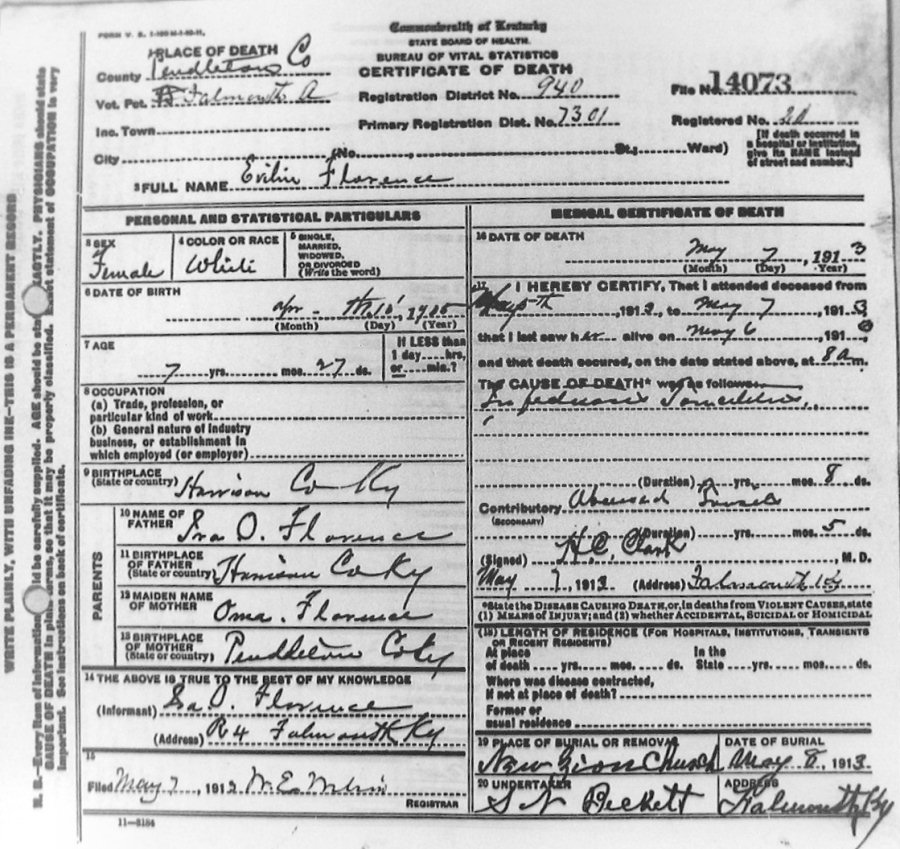 FORM V. S. 1-100 M-1-10-11.
Commonwealth of Kentucky
STATE BOARD OF HEALTH.
BUREAU OF VITAL STATISTICS
CERTIFICATE OF DEATH
PLACE OF DEATH
County Pendleton Co
Vot. Pct. Falmouth A
Inc. Town
City
Registration District No. 940
Primary Registration Dist. No. 7301
File No. 14073
Registered No. 20
(No. , St.; Ward)
[If death occurred in
a hospital or institution,
give its NAME instead
of street and number.]
2 FULL NAME Evilin Florence
PERSONAL AND STATISTICAL PARTICULARS
3 SEX
Female
4 COLOR OR RACE
White
5 SINGLE,
MARRIED,
WIDOWED,
OR DIVORCED
(Write the word)
6 DATE OF BIRTH
Apr 10, 1905
(Month) (Day) (Year)
7 AGE
7 yrs. mos. 27 ds.
If LESS than
1 day hrs.
or min.?
8 OCCUPATION
(a) Trade, profession, or
particular kind of work
(b) General nature of industry
business, or establishment in
which employed (or employer)
9 BIRTHPLACE
(State or country) Harrison Co Ky
PARENTS
10 NAME OF
FATHER Ira O. Florence
11 BIRTHPLACE
OF FATHER
(State or country) Harrison Co Ky
12 MAIDEN NAME
OF MOTHER Oma Florence
13 BIRTHPLACE
OF MOTHER
(State or country) Pendleton Co Ky
14 THE ABOVE IS TRUE TO THE BEST OF MY KNOWLEDGE
(Informant) O. Florence
(Address) R4 Falmouth Ky
15
Filed May 7, 1913 W. E.
REGISTRAR
11-3184
MEDICAL CERTIFICATE OF DEATH
16 DATE OF DEATH
May 7, 1913
(Month) (Day) (Year)
17 I HEREBY CERTIFY, That I attended deceased from
May 5th, 1913, to May 7, 1913
that I last saw her alive on May 6, 191
and that death occured, on the date stated above, at 8 a m.
The CAUSE OF DEATH* was as follows:
(Duration) yrs. mos. 8 ds.
Contributory
(SECONDARY)
(Duration) yrs. mos. 5 ds.
(Signed) H.C. Clark M. D.
May 7, 1913 (Address) Falmouth Ky
*State the DISEASE CAUSING DEATH, or, in deaths from VIOLENT CAUSES, state
(1) MEANS OF INJURY; and (2) whether ACCIDENTAL, SUICIDAL or HOMICIDAL
(18) LENGTH OF RESIDENCE (FOR HOSPITALS, INSTITUTIONS, TRANSIENTS
OR RECENT RESIDENTS)
At place In the
of death yrs. mos. ds. State yrs. mos. ds.
Where was disease contracted,
if not at place of death?
Former or
usual residence
19 PLACE OF BURIAL OR REMOVAL
New Zion Church
DATE OF BURIAL
May 8, 1913
20 UNDERTAKER
S N Beckett
ADDRESS
Falmouth Ky
WRITE PLAINLY, WITH UNFADING INK—THIS IS A PERMANENT RECORD
N. B.—Every item of information should be carefully supplied. AGE should be stated EXACTLY. PHYSICIANS should state
CAUSE OF DEATH in plain terms, so that it may be properly classified. Exact statement of OCCUPATION is very
important. See instructions on back of certificate.